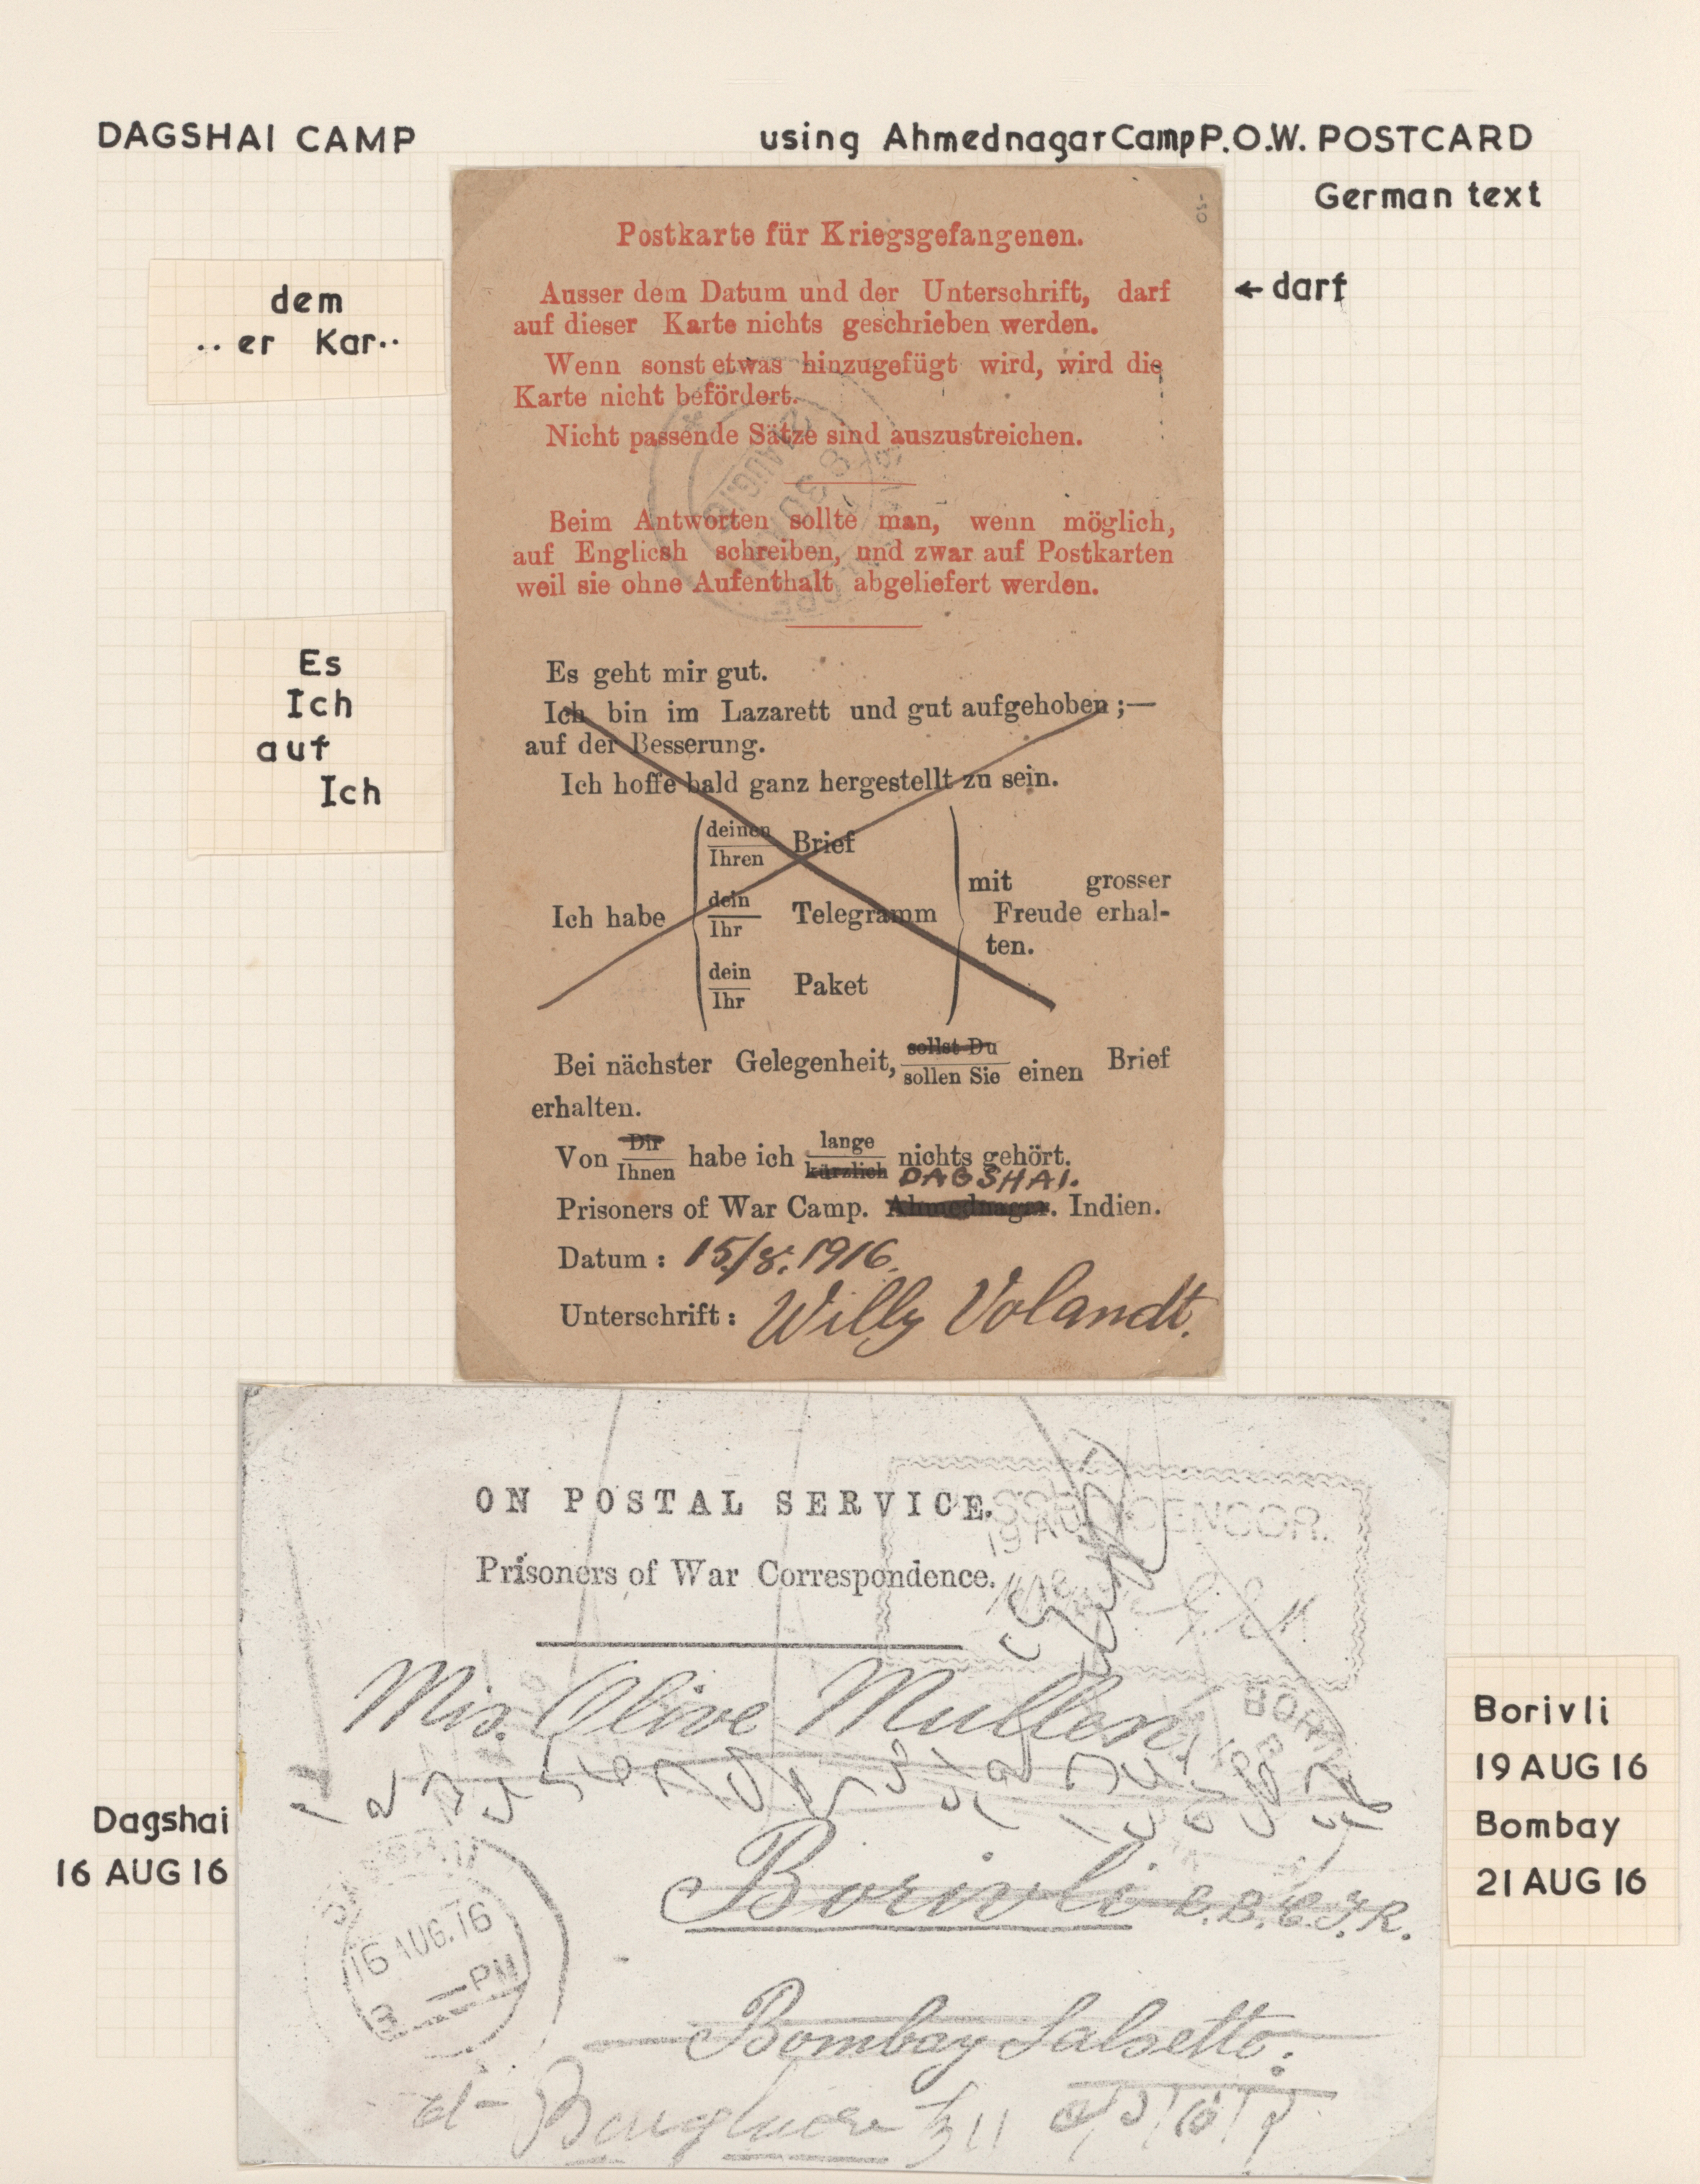 DAGSHAI CAMP
using Ahmednagar Camp P.O.W. POSTCARD
German text
dem
..er Kar..
←darf
Es
Ich
auf
Ich
Postkarte für Kriegsgefangenen.
Ausser dem Datum und der Unterschrift, darf
auf dieser Karte nichts geschrieben werden.
Wenn sonst etwas hinzugefügt wird, wird die
Karte nicht befördert.
Nicht passende Sätze sind auszustreichen.
AUG.16
8 30
Beim Antworten sollte man, wenn möglich,
auf Englicsh schreiben, und zwar auf Postkarten
weil sie ohne Aufenthalt abgeliefert werden.
Es geht mir gut.
Ich bin im Lazarett und gut aufgehoben ;—
auf der Besserung.
Ich hoffe bald ganz hergestellt zu sein.
deinen
Ihren
Brief
Ich habe
dein
Ihr
Telegramm
dein
Ihr
Paket
mit grosser
Freude erhal-
ten.
Bei nächster Gelegenheit, sollst Du
sollen Sie einen Brief
erhalten.
Von Dir
Ihnen habe ich lange
kürzlich nichts gehört.
DAGSHAI.
Prisoners of War Camp. Ahmednagar. Indien.
Datum : 15/8. 1916.
Unterschrift : Willy Volandt.
ON POSTAL SERVICE.
Prisoners of War Correspondence.
CENSOR.
19 AUG
Mis. Olive Mullen,
BORIVLI
Borivli B.B.C.I.R.
Bombay Salsette.
16 AUG.16
3 — PM
Dagshai
16 AUG 16
Borivli
19 AUG 16
Bombay
21 AUG 16